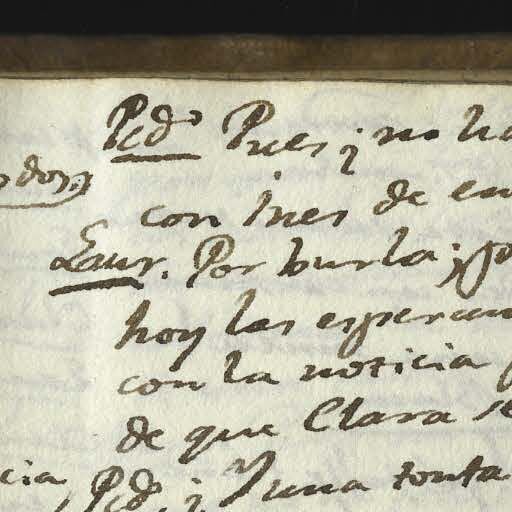 Pedº Pues ¿ no ha
con Ines de en
Laur. Por burla; p
hoy las esperan
con la noticia p
de que Clara se
cia Pedº. ¿ Y una tonta